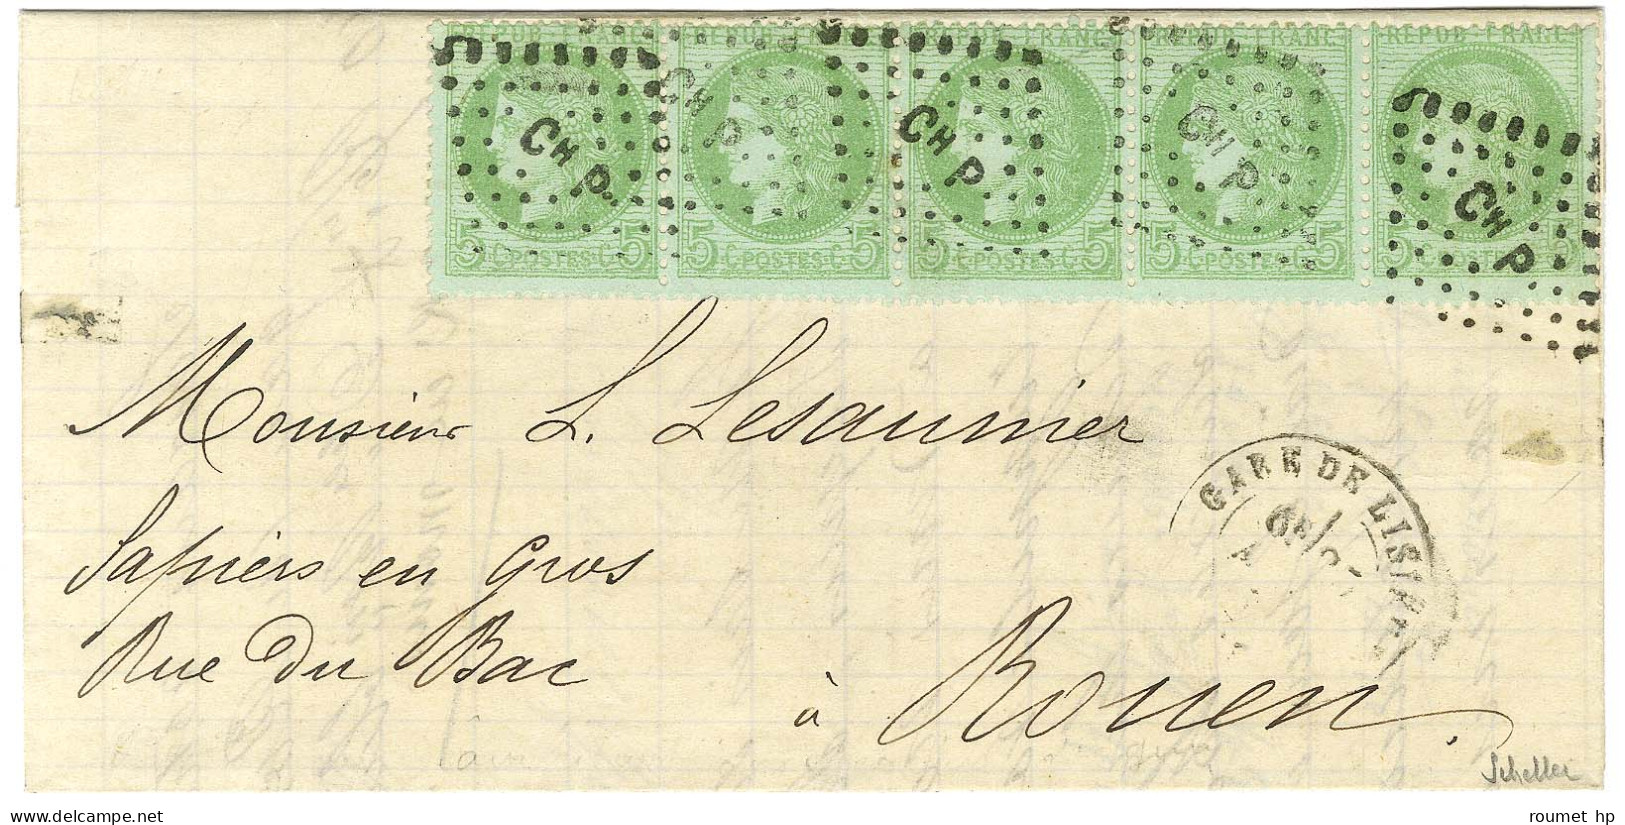 REPUB FRANC REPUB FRANC REPUB FRANC REPUB FRANC REPUB FRANC
CH P CH P CH P CH P CH P
5 C POSTES C 5 5 C POSTES C 5 5 C POSTES C 5 5 C POSTES C 5 5 C POSTES C 5
Monsieur L. Lesaunier
GARE DE LISIEUX
Papiers en Gros
Rue du Bac
à Rouen.
Scheller
© roumet hp